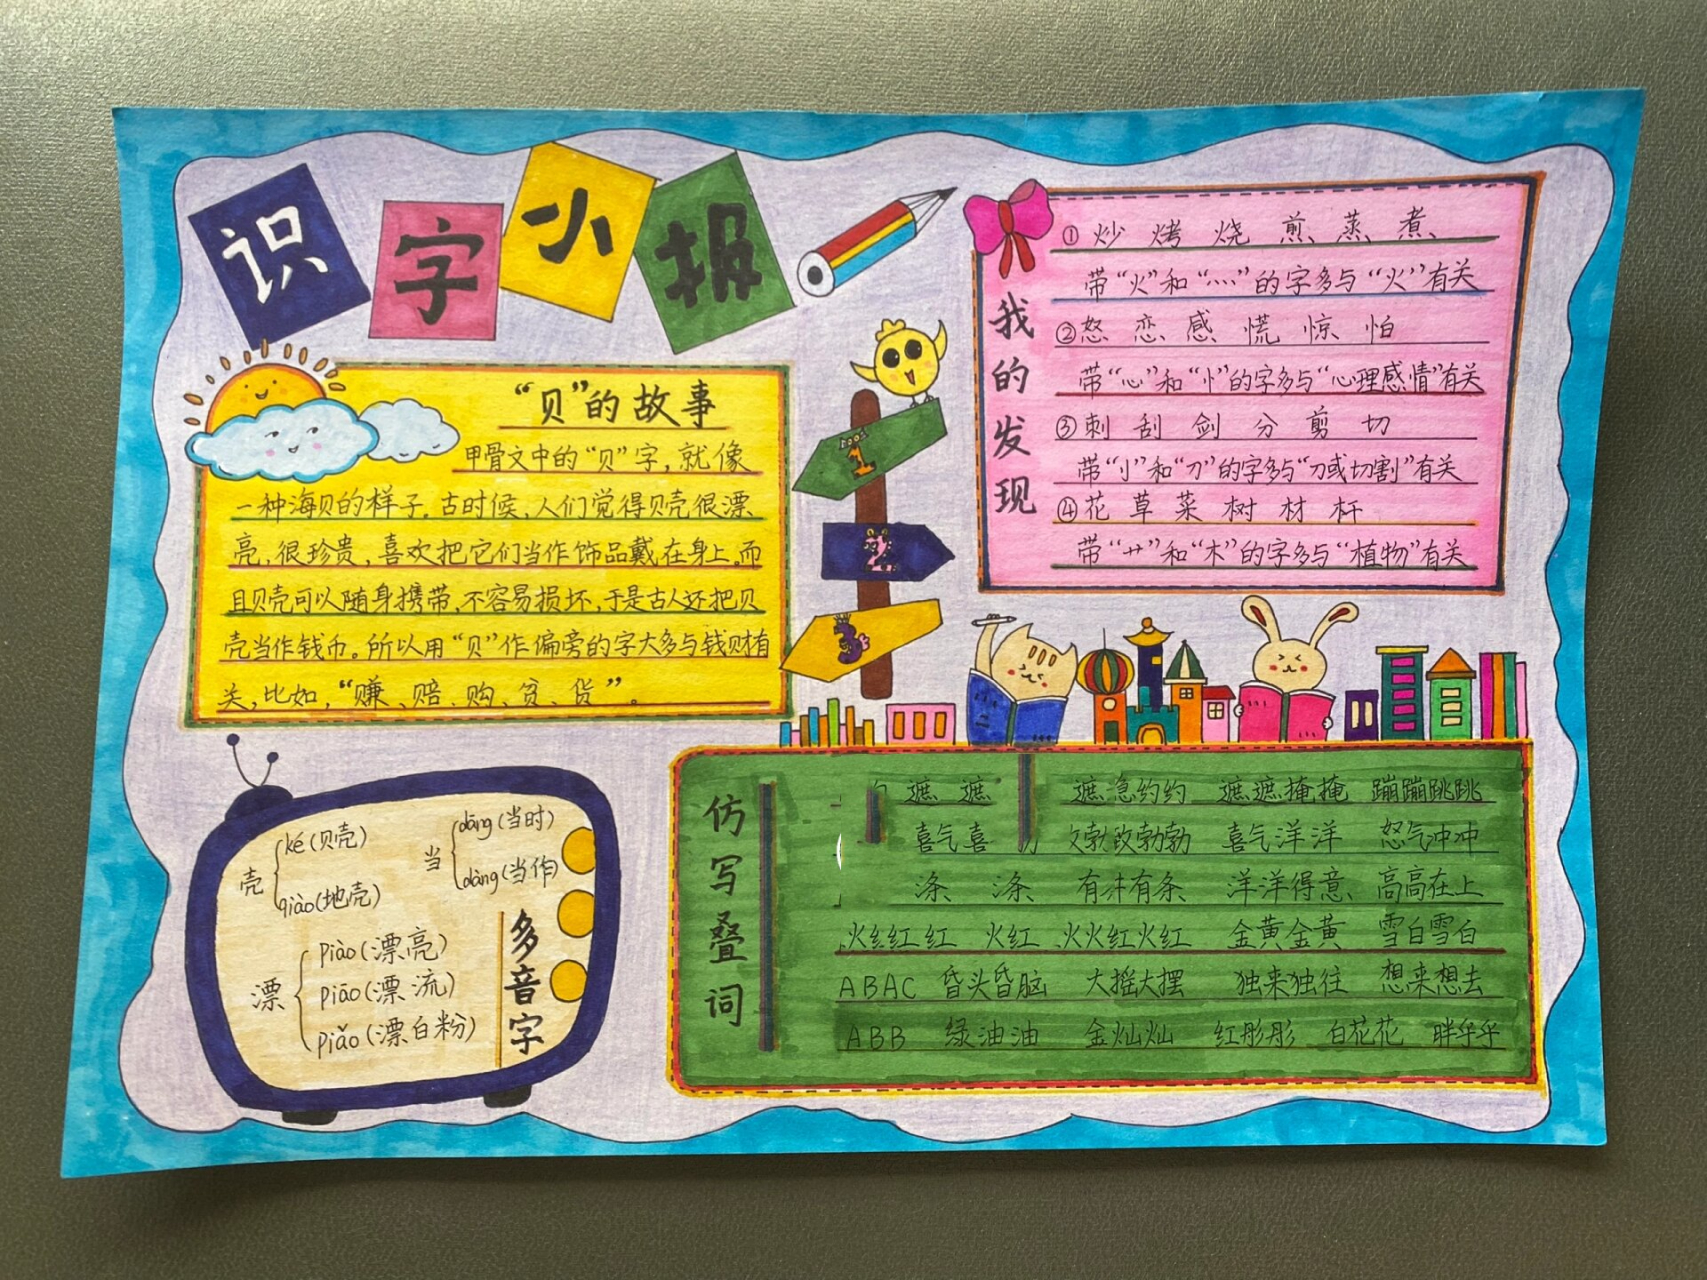 识字小报
“贝”的故事
甲骨文中的“贝”字,就像
一种海贝的样子。古时候,人们觉得贝壳很漂
亮,很珍贵,喜欢把它们当作饰品戴在身上。而
且贝壳可以随身携带,不容易损坏,于是古人还把贝
壳当作钱币。所以用“贝”作偏旁的字大多与钱财有
关,比如,“赚、赔、购、贫、货”。
1
2
3
我的发现
①炒 烤 烧 煎 蒸 煮
带“火”和“灬”的字多与“火”有关
②怒 恋 感 慌 惊 怕
带“心”和“忄”的字多与“心理感情”有关
③刺 刮 剑 分 剪 切
带“刂”和“刀”的字多与“刀或切割”有关
④花 草 菜 树 材 杆
带“艹”和“木”的字多与“植物”有关
多音字
壳 ké(贝壳)
qiào(地壳)
当 dāng(当时)
dàng(当作)
漂 piào(漂亮)
piāo(漂流)
piǎo(漂白粉)
仿写叠词
遮 遮 遮急约约 遮遮掩掩 蹦蹦跳跳
喜气喜 勃勃 喜气洋洋 怒气冲冲
条 条 有有条 洋洋得意 高高在上
红红 火红 火火红火红 金黄金黄 雪白雪白
ABAC 昏头昏脑 大摇大摆 独来独往 想来想去
ABB 绿油油 金灿灿 红彤彤 白花花 胖乎乎